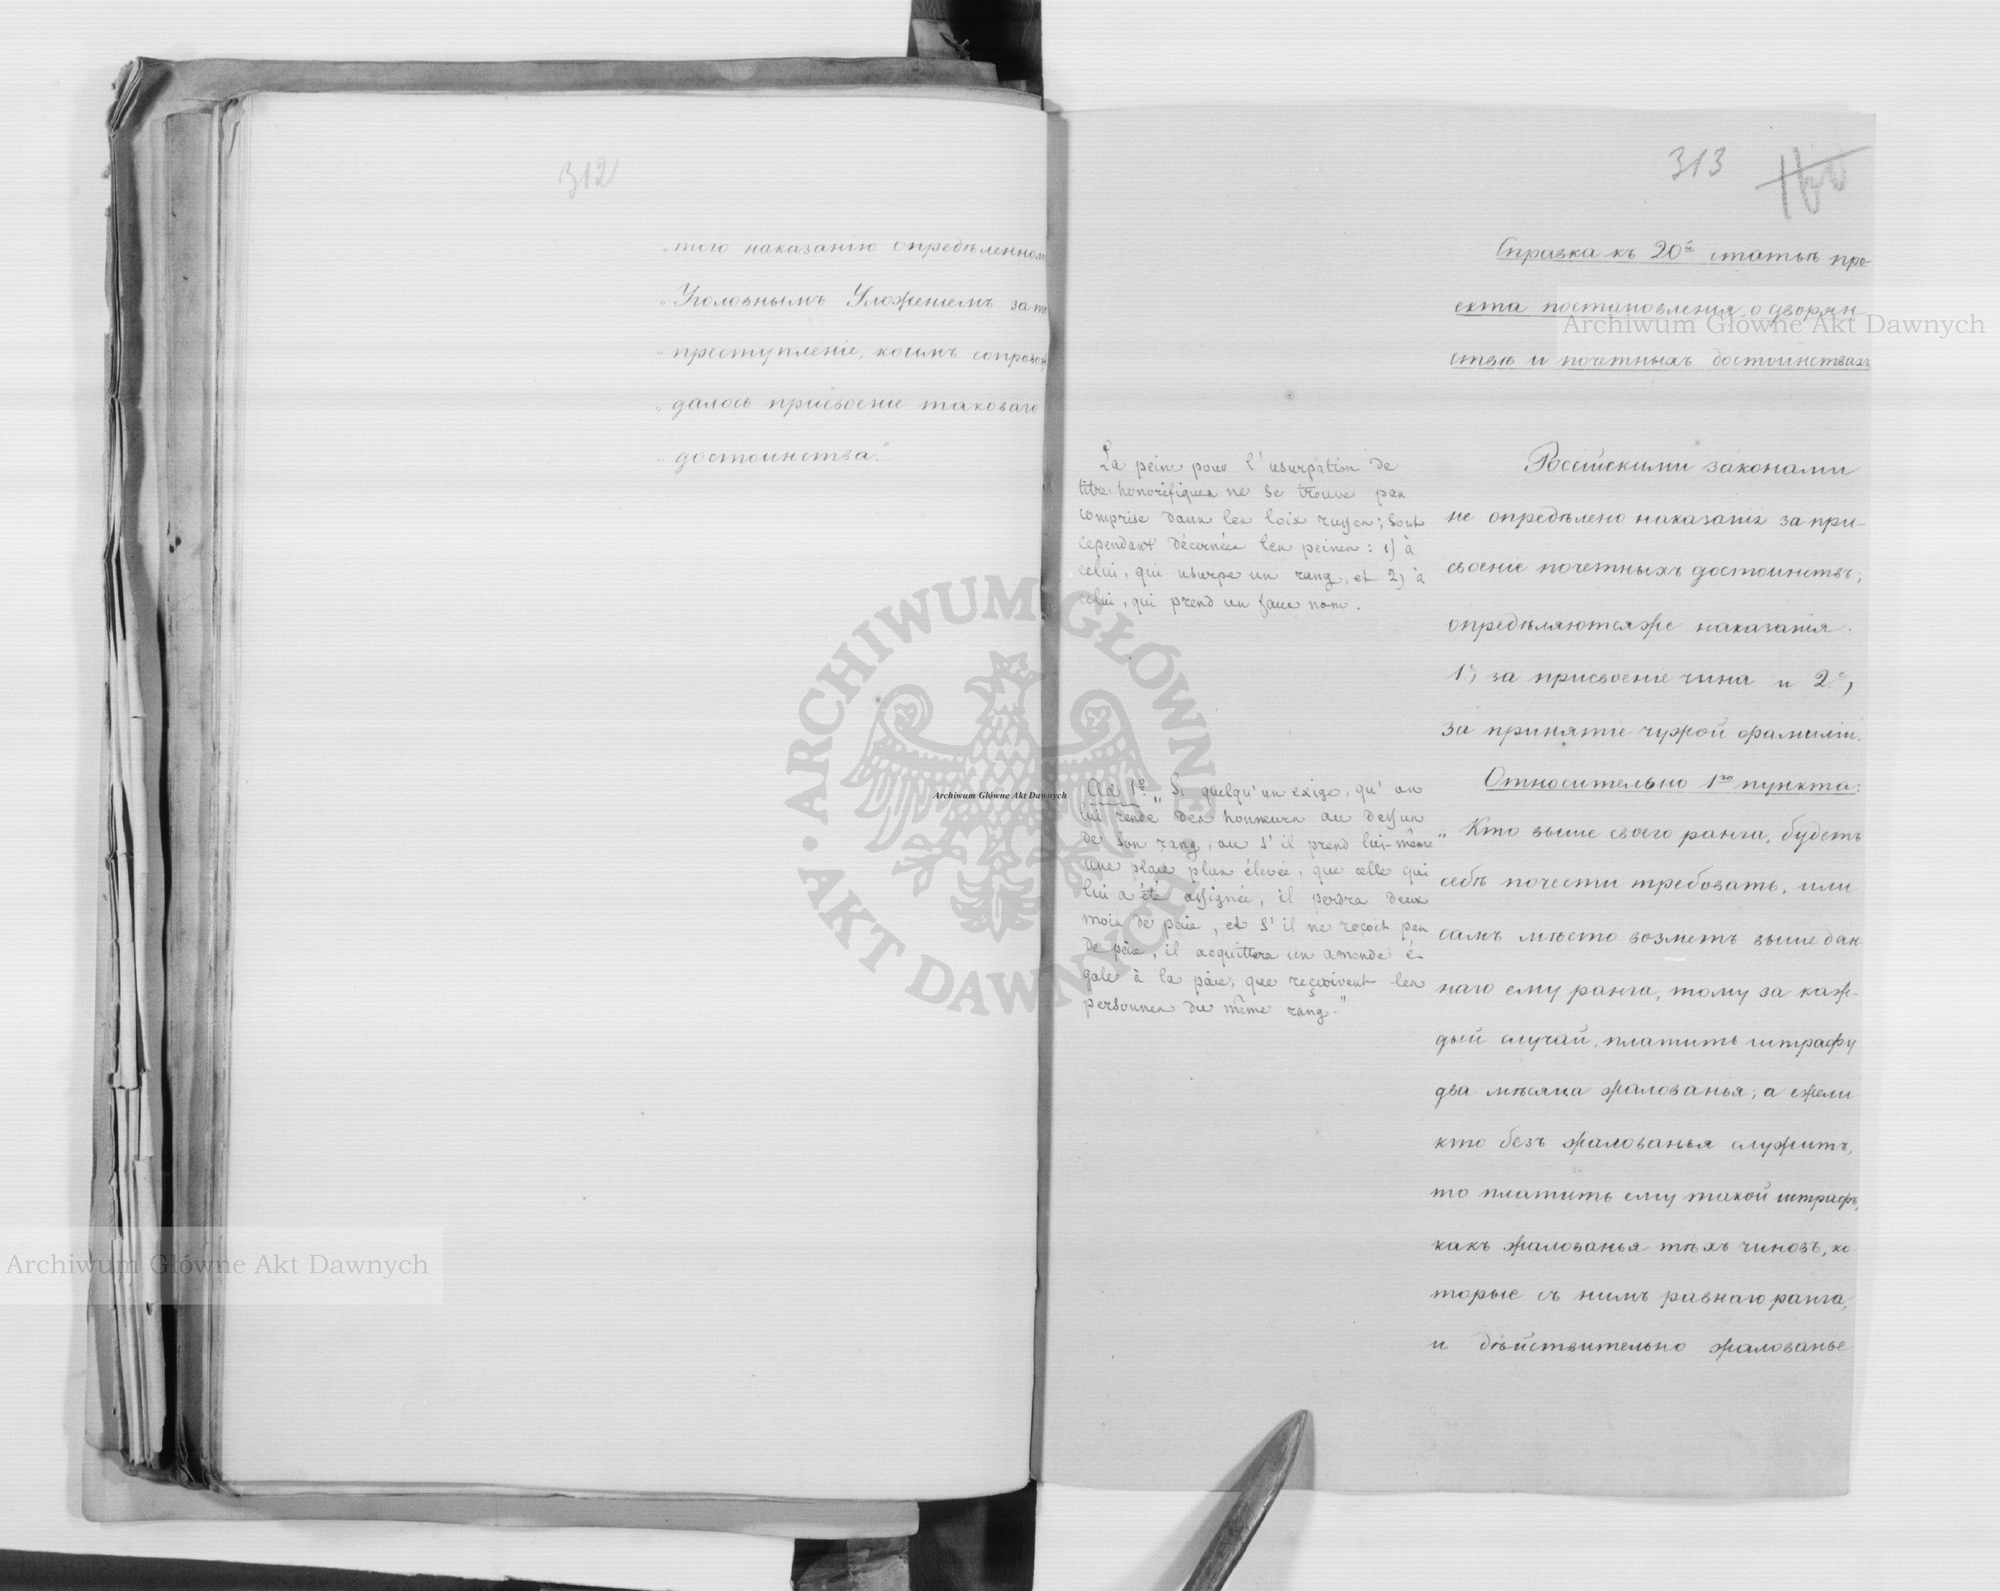 312
„того наказанію опредѣленном
„Уголовнымъ Уложеніемъ за т
„преступленіе, коимъ сопровож
„далось присвоеніе таковаго
„достоинства."
313
Справка къ 20й статьѣ про-
екта постановленія о дворян-
ствѣ и почетныхъ достоинствахъ
La peine pour l'usurpation de
titres honorifiques ne se trouve pas
comprise dans les loix russes; sont
cependant décernées les peines: 1) à
celui, qui usurpe un rang, et 2) à
celui, qui prend un faux nom.
Ad 1º. „Si quelqu'un exige, qu'on
lui rende des honneurs au dessus
de son rang, ou s'il prend lui-même
une place plus élevée, que celle qui
lui a été assignée, il perdra deux
mois de païe, et s'il ne reçoit pas
de païe, il acquittera un amende é-
gale à la païe, que reçoivent les
personnes du même rang."
Россійскими законами
не опредѣлено наказанія за при-
своеніе почетныхъ достоинствъ;
опредѣляются же наказанія:
1е, за присвоеніе чина и 2е,
за принятіе чужой фамиліи.
Относительно 1го пункта:
„Кто выше своего ранга, будетъ
себѣ почести требовать, или
самъ мѣсто возметъ выше дан-
наго ему ранга, тому за каж-
дый случай, платить штрафу
два мѣсяца жалованья; а ежели
кто безъ жалованья служитъ,
то платить ему такой штрафъ,
какъ жалованья тѣхъ чиновъ, ко-
торые съ нимъ равнаго ранга,
и дѣйствительно жалованье
Archiwum Główne Akt Dawnych
Archiwum Główne Akt Dawnych
Archiwum Główne Akt Dawnych
ARCHIWUM GŁÓWNE · AKT DAWNYCH ·